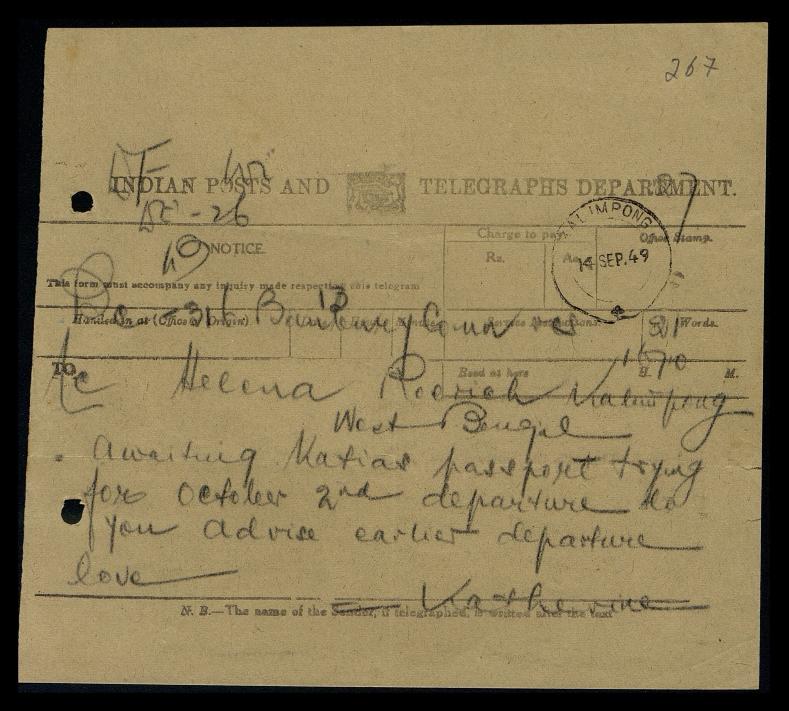 267
INDIAN POSTS AND TELEGRAPHS DEPARTMENT.
- 26
27
NOTICE.
This form must accompany any inquiry made respecting this telegram
Charge to pay
Rs. As.
Office Stamp.
KALIMPONG
14 SEP. 49
Handed in at (Office of Origin)
13
Words.
TO
Recd at here H. M.
Helena Roerich Kalimpong
West Bengal
Awaiting Katias passport trying
for October 2nd departure do
you advise earlier departure
love
Katherine
N. B.—The name of the Sender, if telegraphed, is written after the text